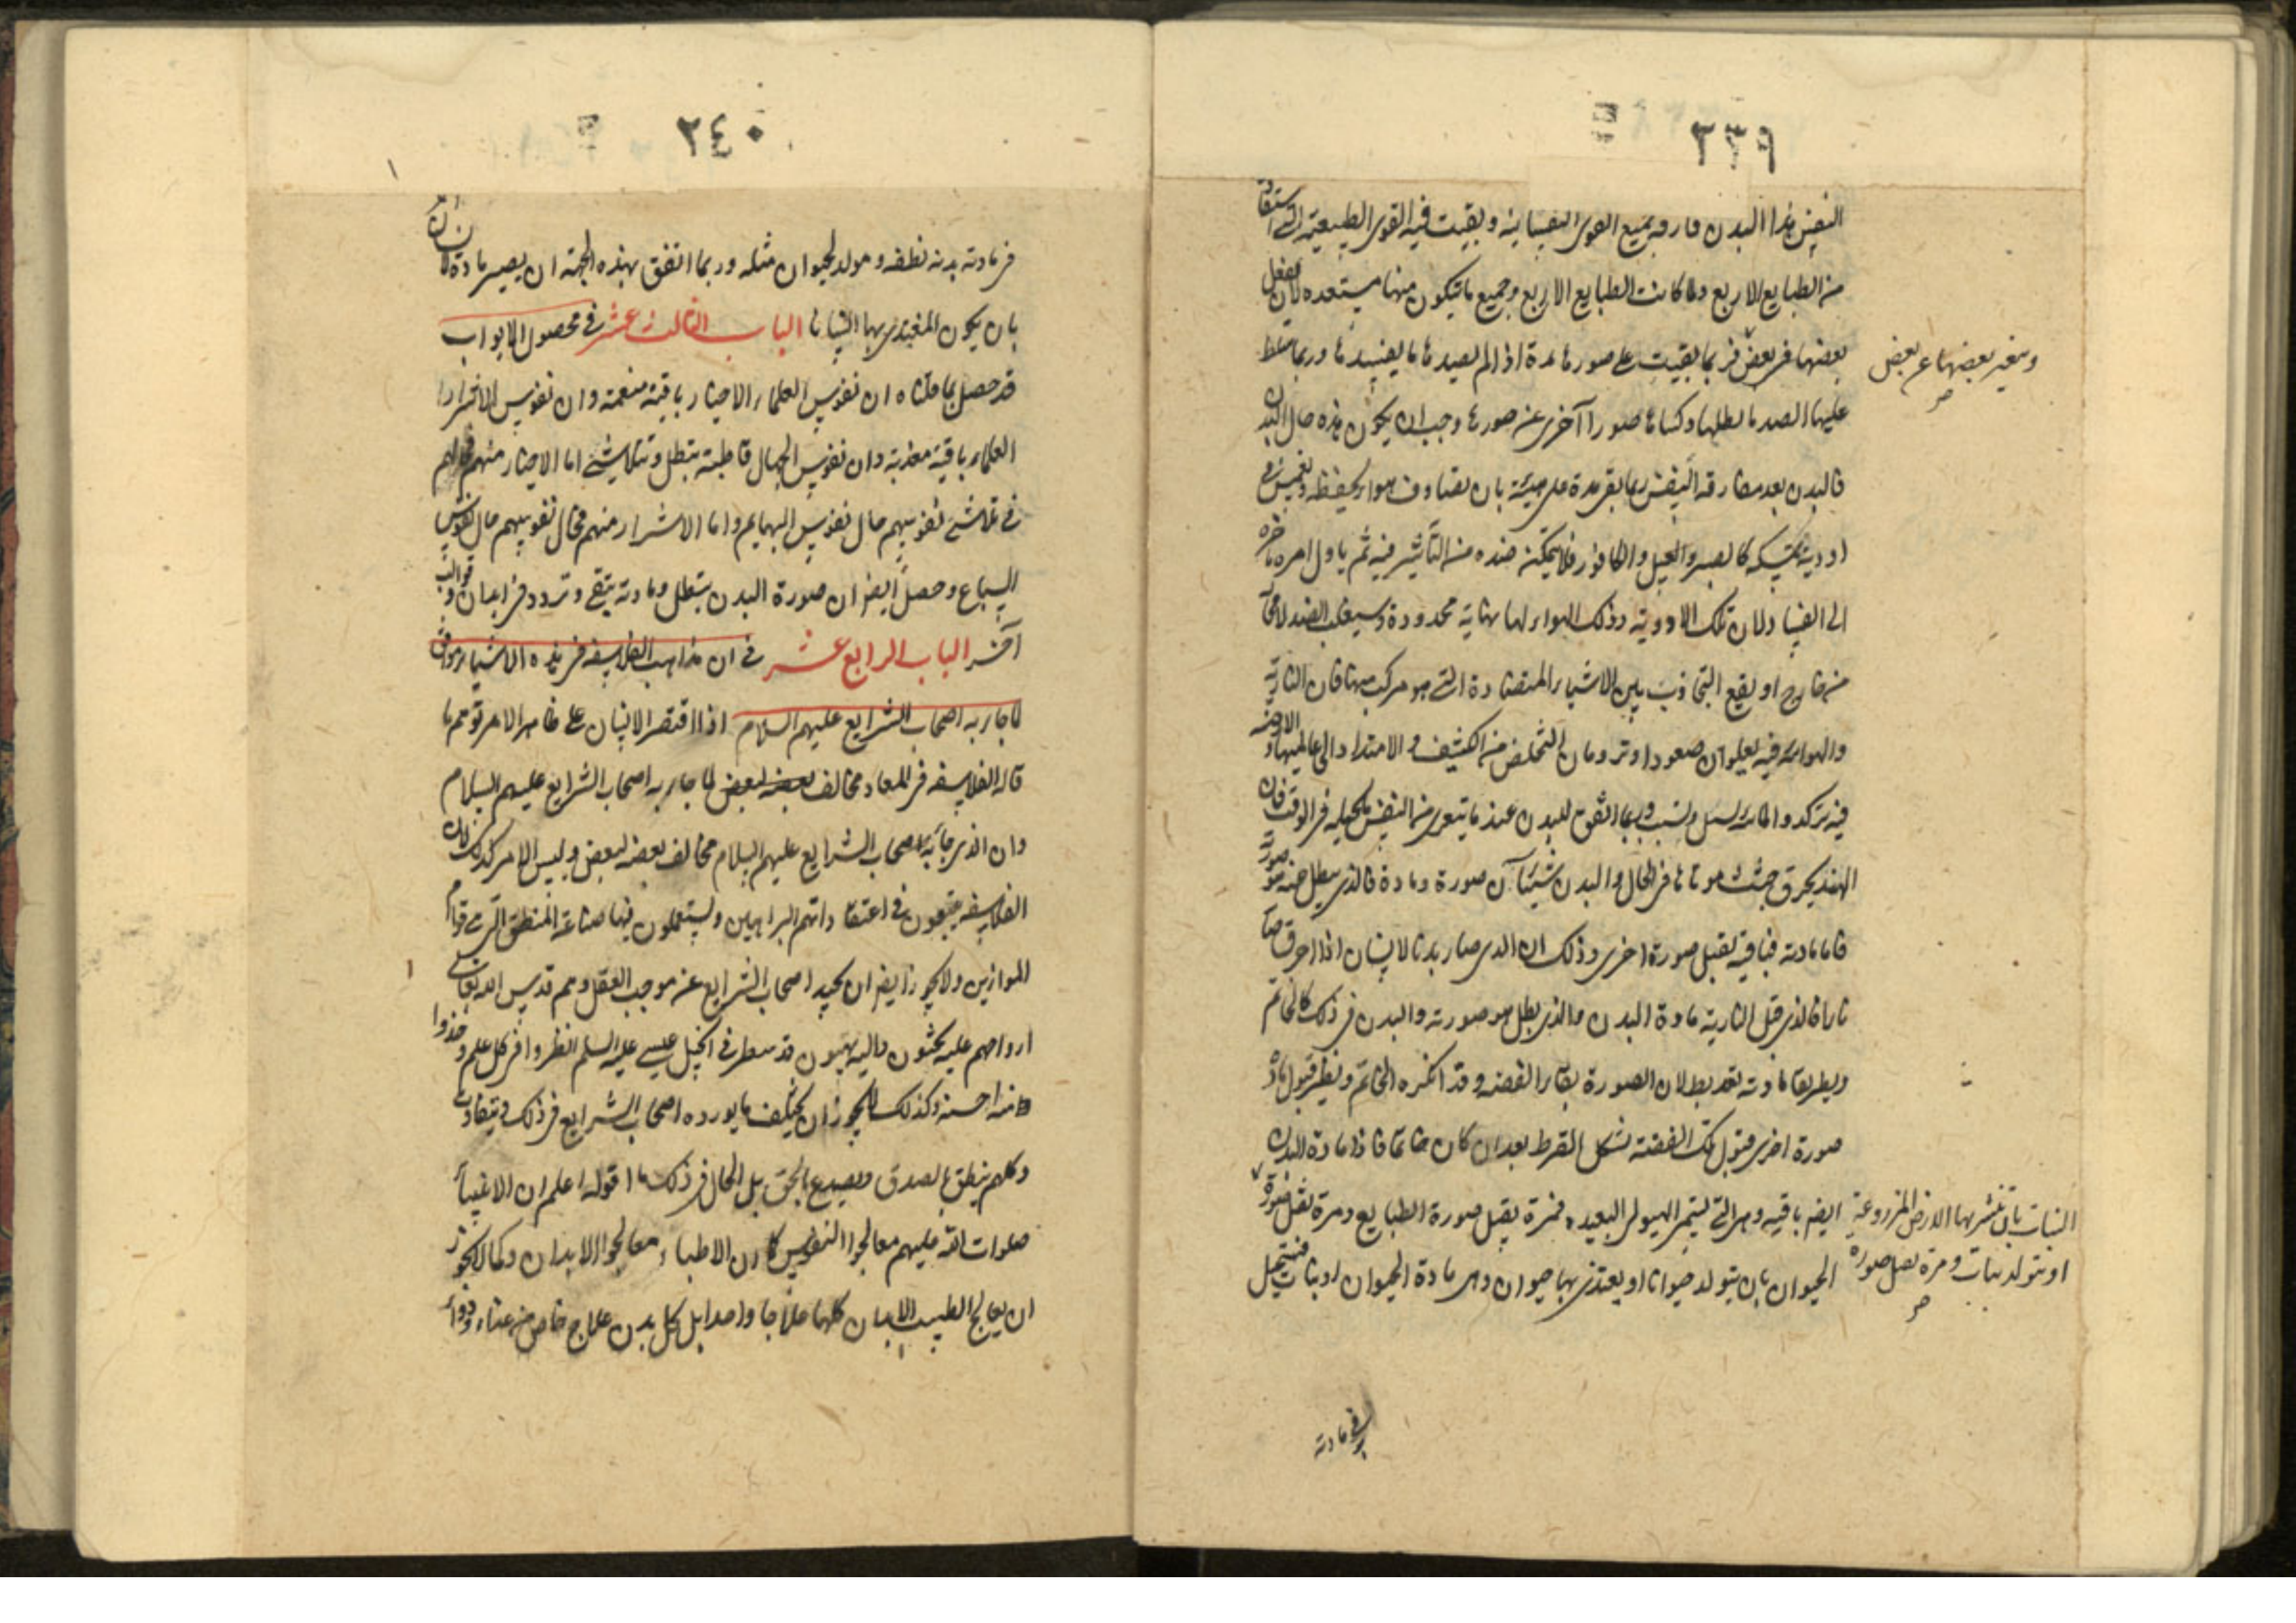 ٢٣٩
النفس هذا البدن فارقه جميع القوى النفسانية وبقيت فيه القوى الطبيعية التى استفاد
من الطبايع الاربع ولما كانت الطبايع الاربع وجميع ما يتكون منها مستعدة لان يفعل
بعضها فى بعض فربما بقيت على صورها مدة اذا لم يصبها ما يفسدها وربما تسلط
وتغير بعضها عن بعض
صح
عليها الضد فابطلها وكساها صورا آخرى غير صورها وجب ان يكون هذه حال البدن
فالبدن بعد مفارقة النفس ربما بقى مدة على هيئته بان يصادف هواء يحفظه
او ادوية تمسكه كالصبر والعسل والكافور فلا يمكن ضده من التأثير فيه ثم ياول امره باخره
الى الفساد لان تلك الادوية وذلك الهواء لها نهاية محدودة وسيغلب الضد لا محالة
من خارج او يقع التجاذب بين الاشياء المتضادة التى هو مركب منها فان النارية
والهوائية فيه يطلبان صعودا وترومان التخلص من الكثيف والامتداد الى عالميهما والارضية
فيه تركد والمائية تسيل وترسب وربما اتفق للبدن عند ما يتعرى من النفس ما يحيله فى الوقت فان
الهند يحرق جثث موتاها فى الحال والبدن شيئان صورة ومادة فالذى يبطل منه صورته
فاما مادته فباقية تقبل صورة اخرى وذلك ان الذى صار بدنا لانسان اذا احرق صار
نارا فالذى قبل النارية مادة البدن والذى بطل هو صورته والبدن فى ذلك كالخاتم
ونظير بقاء مادته بعد بطلان الصورة بقاء الفضة وقد انكسر الخاتم ونظير قبول مادة
صورة اخرى قبول تلك الفضة شكل القرط بعد ان كان خاتما فاذا مادة البدن
ايضا باقية وهى التى تسمى الهيولى البعيدة فمرة يقبل صورة الطبايع ومرة تقبل صورة
النبات بان تنشر بها الارض المزروعة
او يتولد نبات ومرة تقبل صورة
صح
الحيوان بان يتولد حيوانا او يغتذى بها حيوان وهى مادة الحيوان او نبات فتستحيل
فى مادته
٢٤٠
فى مادته بدنه نطفه ومولد لحيوان مثله وربما اتفق بهذه الجهة ان يصير مادة لانسان
بان يكون المغتذى بها انسانا الباب الثالث عشر فى محصول الابواب
قد حصل بما قلناه ان نفوس العلماء الاخيار باقية منعمة وان نفوس الاشرار
العلماء باقية معذبة وان نفوس الجهال قاطبة تبطل وتتلاشى اما الاخيار منهم فحالهم
فى تلاشى نفوسهم حال نفوس البهايم واما الاشرار منهم فحال نفوسهم حال نفوس
السباع وحصل ايضا ان صورة البدن تبطل ومادته تبقى وتردد فى ابدان وقوالب
آخر الباب الرابع عشر فى ان مذاهب الفلاسفة فى هذه الاشياء موافق
لما جاء به اصحاب الشرايع عليهم السلام اذا اقتصر الانسان على ظاهر الامر توهم ما
قاله الفلاسفة فى المعاد مخالف بعضه لبعض لما جاء به اصحاب الشرايع عليهم السلام
وان الذى جاء به اصحاب الشرايع عليهم السلام مخالف بعضه لبعض وليس الامر كذلك لان
الفلاسفة يتبعون فى اعتقاداتهم البراهين ويستعملون فيها صناعة المنطق التى هى قوام
الموازين ولا يجوز ايضا ان يحيد اصحاب الشرايع عن موجب العقل وهم قدس الله تعالى
ارواحهم عليه يحثون واليه يهيبون قد سطر فى انجيل عيسى عليه السلم انظروا فى كل علم وخذوا
منه احسنه وكذلك لا يجوز ان يختلف ما يورده اصحاب الشرايع فى ذلك ويتفاوت
وكلهم ينطق بالصدق ويصدع بالحق بل الحال فى ذلك ما اقوله اعلم ان الانبياء
صلوات الله عليهم معالجوا النفوس كما ان الاطباء معالجوا الابدان وكما لا يجوز
ان يعالج الطبيب الابدان كلها علاجا واحدا بل لكل بدن علاج خاص من غذاء ودواء